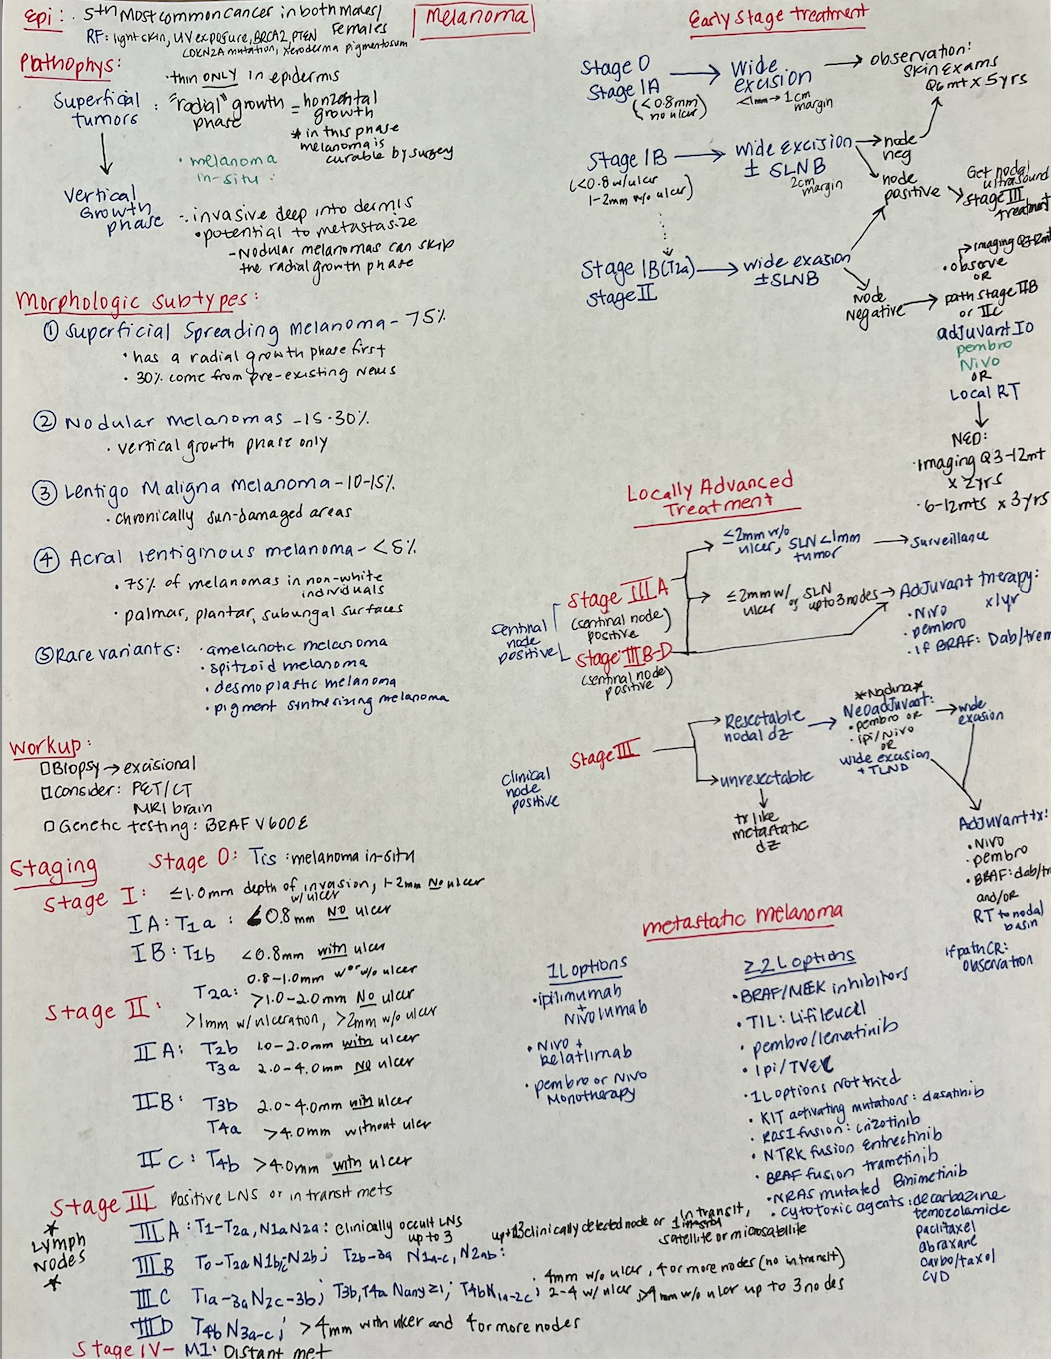 MELANOMA
Epi: 5th Most common cancer in both males/
Females
RF: light skin, UV exposure, BRCA2, PTEN
CDKN2A mutation, xeroderma pigmentosum
Pathophys:
· thin ONLY in epidermis
Superficial tumors : "radial" growth phase = horizontal growth
* in this phase
melanoma is
curable by surgey
· melanoma
in-situ :
Vertical
Growth
phase
- invasive deep into dermis
• potential to metastasize
- Nodular melanomas can skip
the radial growth phase
Morphologic subtypes:
① Superficial Spreading Melanoma - 75%
• has a radial growth phase first
• 30% come from pre-existing nevus
② Nodular Melanomas - 15-30%
• vertical growth phase only
③ Lentigo Maligna melanoma - 10-15%
• chronically sun-damaged areas
④ Acral lentiginous melanoma - <5%
• 75% of melanomas in non-white
individuals
• palmar, plantar, subungal surfaces
⑤ Rare variants: • amelanotic melanoma
• spitzoid melanoma
• desmoplastic melanoma
• pigment synthesizing melanoma
Workup:
□ Biopsy → excisional
□ consider: PET/CT
MRI brain
□ Genetic testing: BRAF V600E
Staging
Stage 0: Tis : melanoma in-situ
Stage I: ≤1.0mm depth of invasion, 1-2mm No ulcer
w/ulcer
IA: T1a : <0.8mm NO ulcer
IB: T1b <0.8mm with ulcer
0.8-1.0mm w or w/o ulcer
T2a: >1.0-2.0mm No ulcer
Stage II: >1mm w/ulceration, >2mm w/o ulcer
IIA: T2b 1.0-2.0mm with ulcer
T3a 2.0-4.0mm No ulcer
IIB: T3b 2.0-4.0mm with ulcer
T4a >4.0mm without ulcer
IIC: T4b >4.0mm with ulcer
Stage III Positive LNS or in transit mets
* Lymph
nodes *
IIIA: T1-T2a, N1a N2a: clinically occult LNS
up to 3
IIIB T0-T2a N1b/c-N2b; T2b-3a N1a-c, N2ab:
clinically detected node or 1 in transit,
satellite or microsatellite
IIIC T1a-3a N2c-3b; T3b, T4a Nany≥1; T4b N1a-2c;
4mm w/o ulcer, 4 or more nodes (no in transit)
2-4 w/ ulcer >4mm w/o ulcer up to 3 nodes
IIID T4b N3a-c; >4mm with ulcer and 4 or more nodes
Stage IV - M1: Distant met
Early Stage treatment
Stage 0
Stage 1A
(<0.8mm)
no ulcer)
Wide
excision
<1mm → 1cm
margin
observation:
Skin Exams
Q6mt x 5yrs
Stage 1B
(<0.8 w/ulcer
1-2mm w/o ulcer)
wide excision
± SLNB
2cm
margin
node
neg
node
positive
Get nodal
ultrasound
Stage III
Treatment
Stage 1B(T2a)
Stage II
wide exasion
± SLNB
Node
Negative
→ imaging Q3-12mt
• observe
OR
path stage IIB
or IIC
adjuvant IO
pembro
Nivo
OR
Local RT
NED:
· imaging Q3-12mt
x 2yrs
· 6-12mts x 3yrs
Locally Advanced
Treatment
≤2mm w/o
ulcer, SLN <1mm
tumor
→ surveillance
sentinal
node
positive
Stage IIIA
(sentinal node)
positive
≤2mm w/
ulcer or SLN
up to 3 nodes
Stage IIIB-D
(sentinal node
positive)
Adjuvant therapy:
x1yr
• Nivo
• pembro
• if BRAF: Dab/trem
clinical
node
positive
Stage III
Resectable
nodal dz
*Nadina*
Neoadjuvant:
• pembro or
• ipi/Nivo
OR
wide excision
+ TLND
→ wide
exasion
unresectable
tx like
metastatic
dz
Adjuvant tx:
• Nivo
• pembro
• BRAF: dab/tr
and/or
RT to nodal
basin
if path CR:
observation
metastatic melanoma
1L options
• ipilimumab
+
Nivolumab
• Nivo +
Relatlimab
• pembro or Nivo
Monotherapy
≥2L options
• BRAF/MEK inhibitors
• TIL: Lifileucel
• pembro/lenvatinib
• Ipi/TVEC
• 1L options not tried
• KIT activating mutations: dasatinib
• ROS1 fusion: crizotinib
• NTRK fusion entrectinib
• BRAF fusion trametinib
• NRAS mutated Binimetinib
• cytotoxic agents: decarbazine
temozolamide
paclitaxel
abraxane
carbo/taxol
CVD